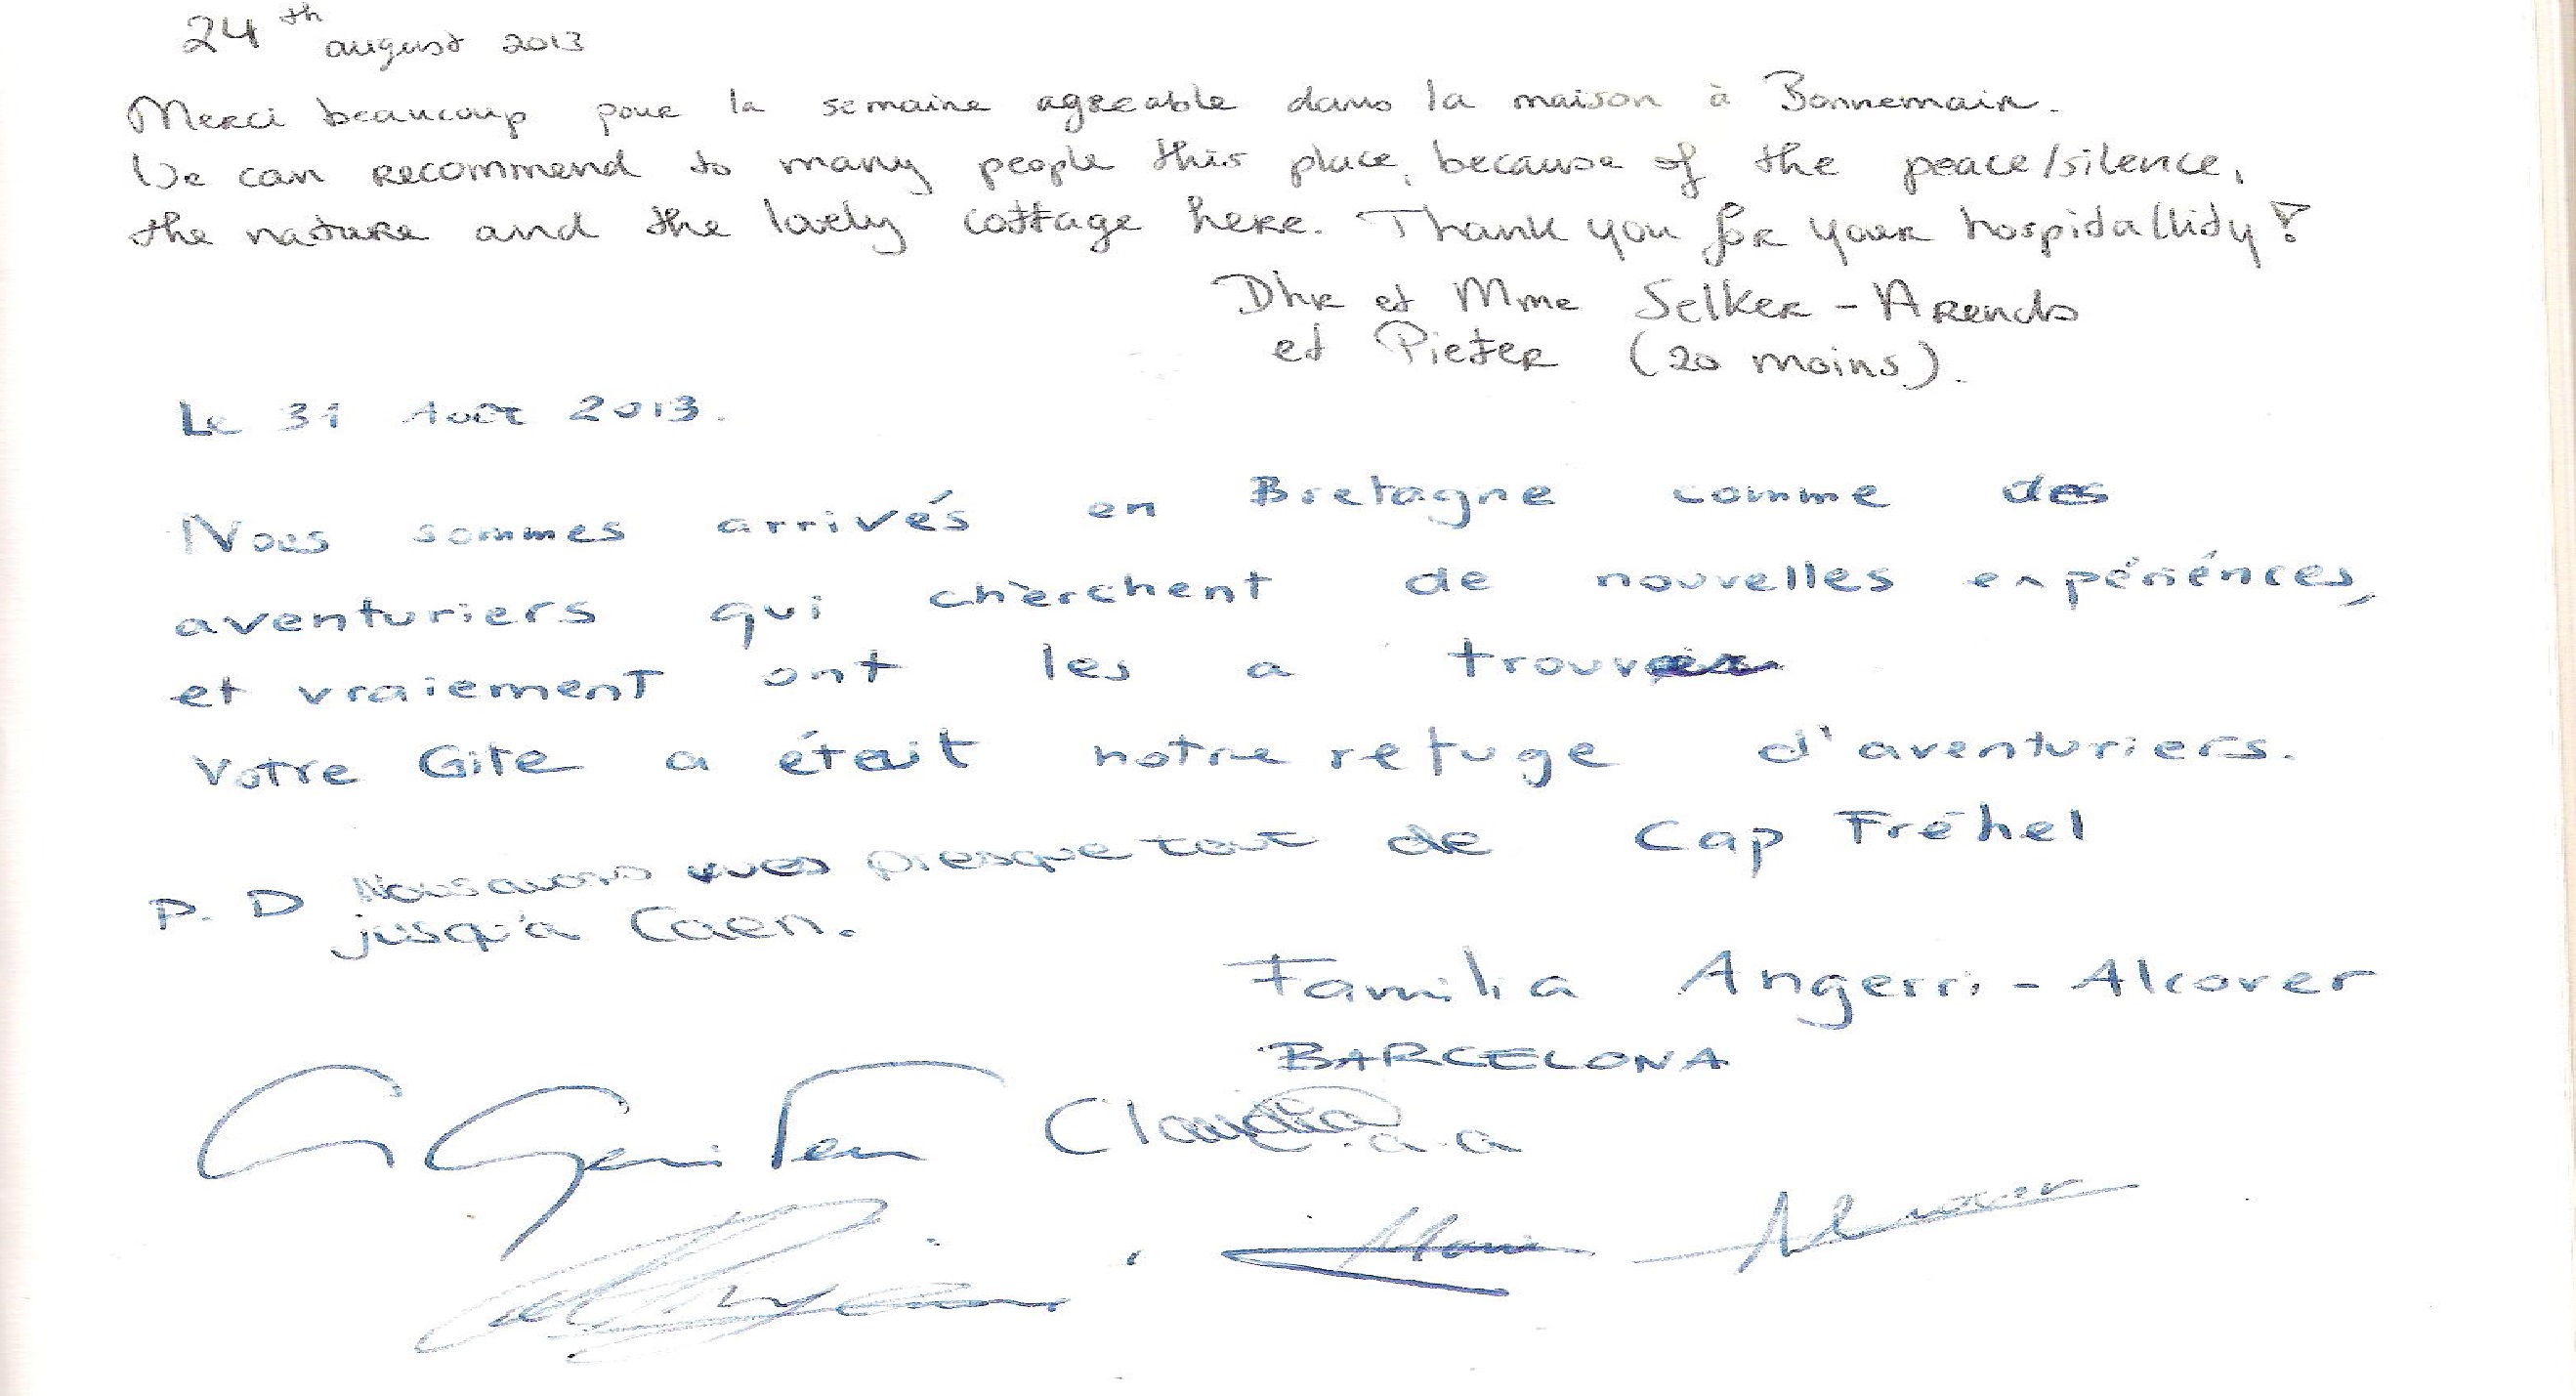 24th august 2013
Merci beaucoup pour la semaine agreable dans la maison à Bonnemain.
We can recommend to many people this place, because of the peace/silence,
the nature and the lovely cottage here. Thank you for your hospidallidy!
Dhr et Mme Selker - Arends
et Pieter (20 moins).
Le 31 Août 2013.
Nous sommes arrivés en Bretagne comme des
aventuriers qui chèrchent de nouvelles expériénces,
et vraiement ont les a
Votre Gite a était notre refuge d'aventuriers.
P. D Nous avons vues presque tout de Cap Fréhel
jusqu'a Caen.
Familia Angerri - Alcover
BARCELONA
Claudia
a.a
Maria Alcover